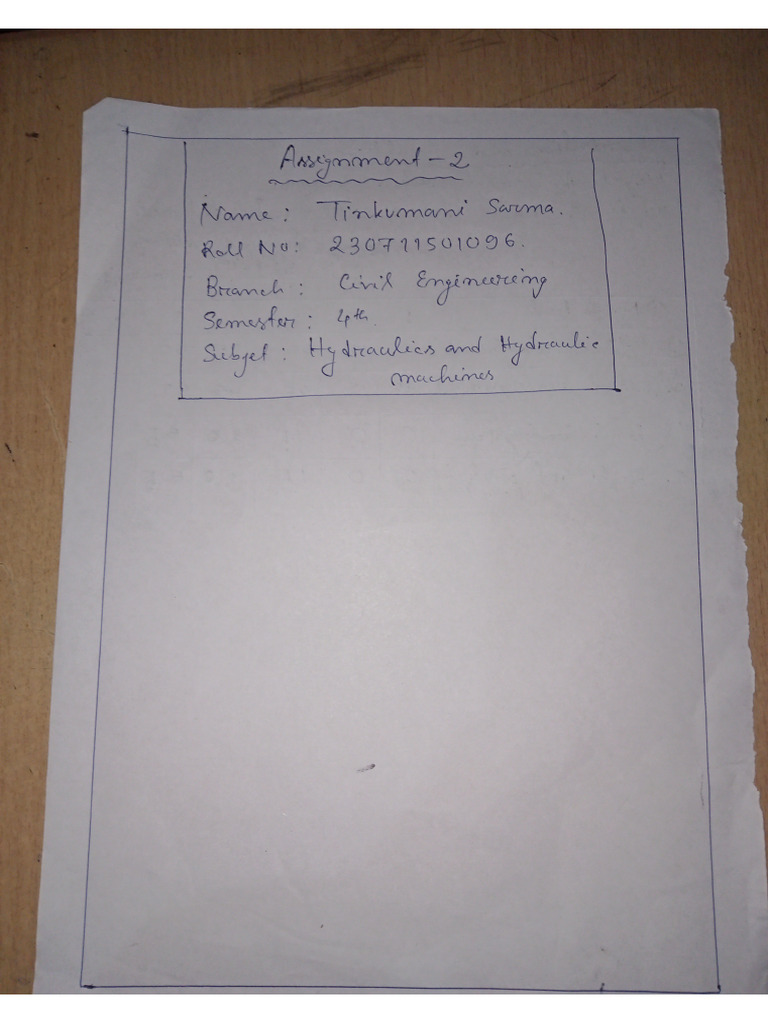 Assignment - 2
Name : Tinkumani Sarma.
Roll No : 230711501096.
Branch : Civil Engineering
Semester : 4th.
Subjet : Hydraulics and Hydraulic
machines